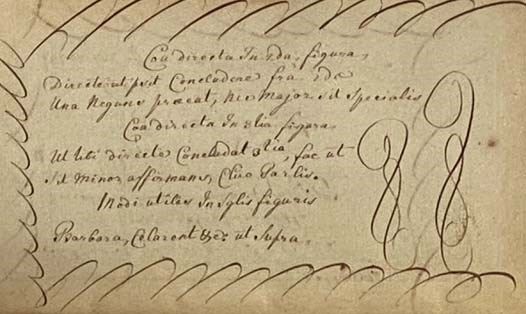 Cra directa In 2da, figura,
Directe ut psit Concludere fra 2da
Una Negans præeat, nec Major sit Specialis
Cra directa In 3tia figura
Ut liti directe Concludat 3tia, fac ut
Sit minor affirmans, Clūo Parlis.
Modi utiles In Sglis figuris
Barbara, Celarent &c: ut Supra.